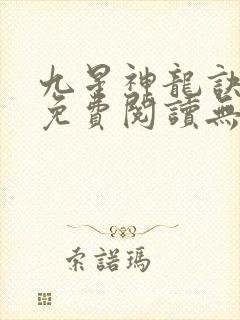 九星神龍訣
免費閱讀無
索諾瑪